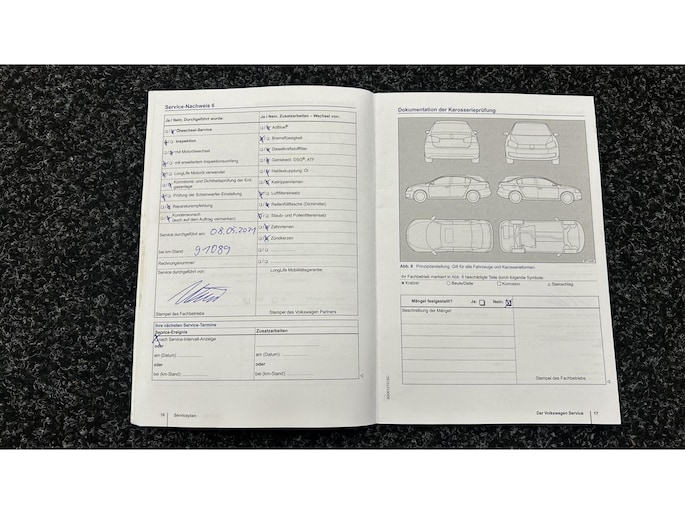 Service-Nachweis 6
Ja / Nein, Durchgeführt wurde:
Ölwechsel-Service
Inspektion
mit Motorölwechsel
mit erweitertem Inspektionsumfang
LongLife Motoröl verwendet
Korrosions- und Dichtheitsprüfung der Erdgasanlage
Prüfung der Scheinwerfer-Einstellung
Reparaturempfehlung
Kundenwunsch
(auch auf dem Auftrag vermerken)
Service durchgeführt am: 08.09.2021
bei km-Stand: 91089
Rechnungsnummer:
Service durchgeführt von:
Stempel des Fachbetriebs
Ja / Nein, Zusatzarbeiten – Wechsel von:
AdBlue®
Bremsflüssigkeit
Dieselkraftstofffilter
Getriebeöl: DSG®, ATF
Haldexkupplung: Öl
Keilrippenriemen
Luftfiltereinsatz
Reifenfüllflasche (Dichtmittel)
Staub- und Pollenfiltereinsatz
Zahnriemen
Zündkerzen
LongLife Mobilitätsgarantie:
Stempel des Volkswagen Partners
Ihre nächsten Service-Termine
Service-Ereignis
nach Service-Intervall-Anzeige
oder
am (Datum)
oder
bei (km-Stand)
Zusatzarbeiten
am (Datum)
oder
bei (km-Stand)
16 Serviceplan
Dokumentation der Karosserieprüfung
Abb. 6 Prinzipdarstellung: Gilt für alle Fahrzeuge und Karosserieformen.
Ihr Fachbetrieb markiert in Abb. 6 beschädigte Teile durch folgende Symbole:
Kratzer
Beule/Delle
Korrosion
Steinschlag
Mängel festgestellt? Ja: Nein:
Beschreibung der Mängel:
Stempel des Fachbetriebs
Der Volkswagen Service 17